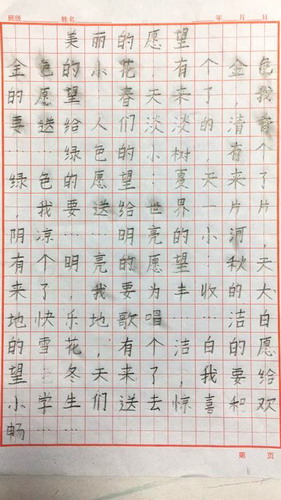 班级 姓名 年 月 日
美丽的愿望
金色的小花，有个金色
的愿望……春天来了，我
要送给人们淡淡的清香
……绿色的小树，有个
绿色的愿望……夏天来了
，我要送给世界一片片
阴凉……明亮的小河，
有个明亮的愿望……秋天
来了，我要为丰收的大
地快乐地歌唱……洁白
的雪花，有个洁白的愿
望……冬天来了，我要给
小学生们送去惊喜和欢
畅……
第 页